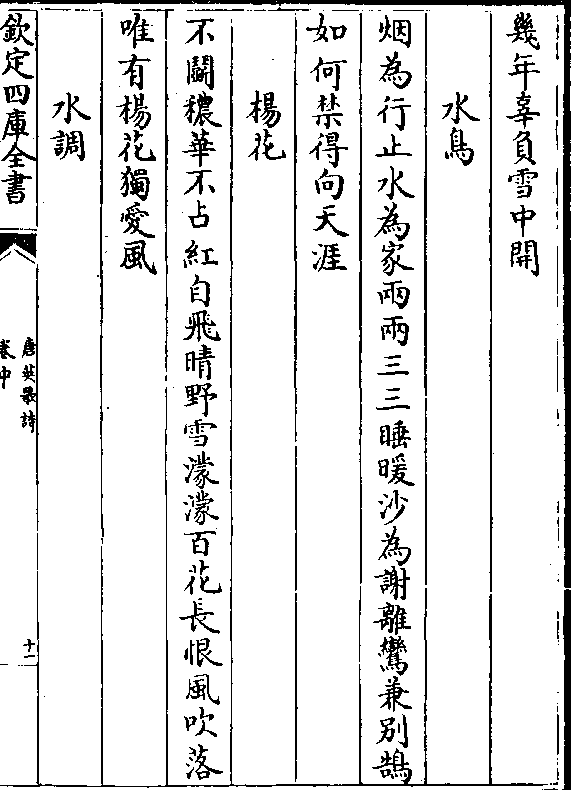 幾年辜負雪中開
水鳥
烟為行止水為家兩兩三三睡暖沙為謝離鸞兼别鵠
如何禁得向天涯
楊花
不鬭穠華不占紅自飛晴野雪濛濛百花長恨風吹落
唯有楊花獨愛風
水調
欽定四庫全書
唐英歌詩
卷中
十二